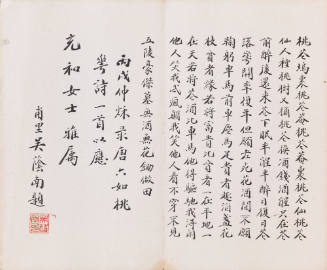 桃花塢裏桃花菴桃花菴裏桃花仙桃花
仙人種桃樹又摘桃花換酒錢酒醒只在花
前醉後還來花下眠半醒半醉日復日花
落花開復年但願老死花酒間不願
鞠躬車馬前車塵馬足貴者趣酒盞花
枝貧者緣若將富貴比貧者一在平地一
在天若將花酒比車馬他得驅馳我得閒
他人笑我忒風顛我笑他人看不穿不見
五陵豪傑墓無酒無花鋤做田
丙戌仲秋录唐六如桃
華詩一首以應
充和女士雅屬
甫里吳蔭南題